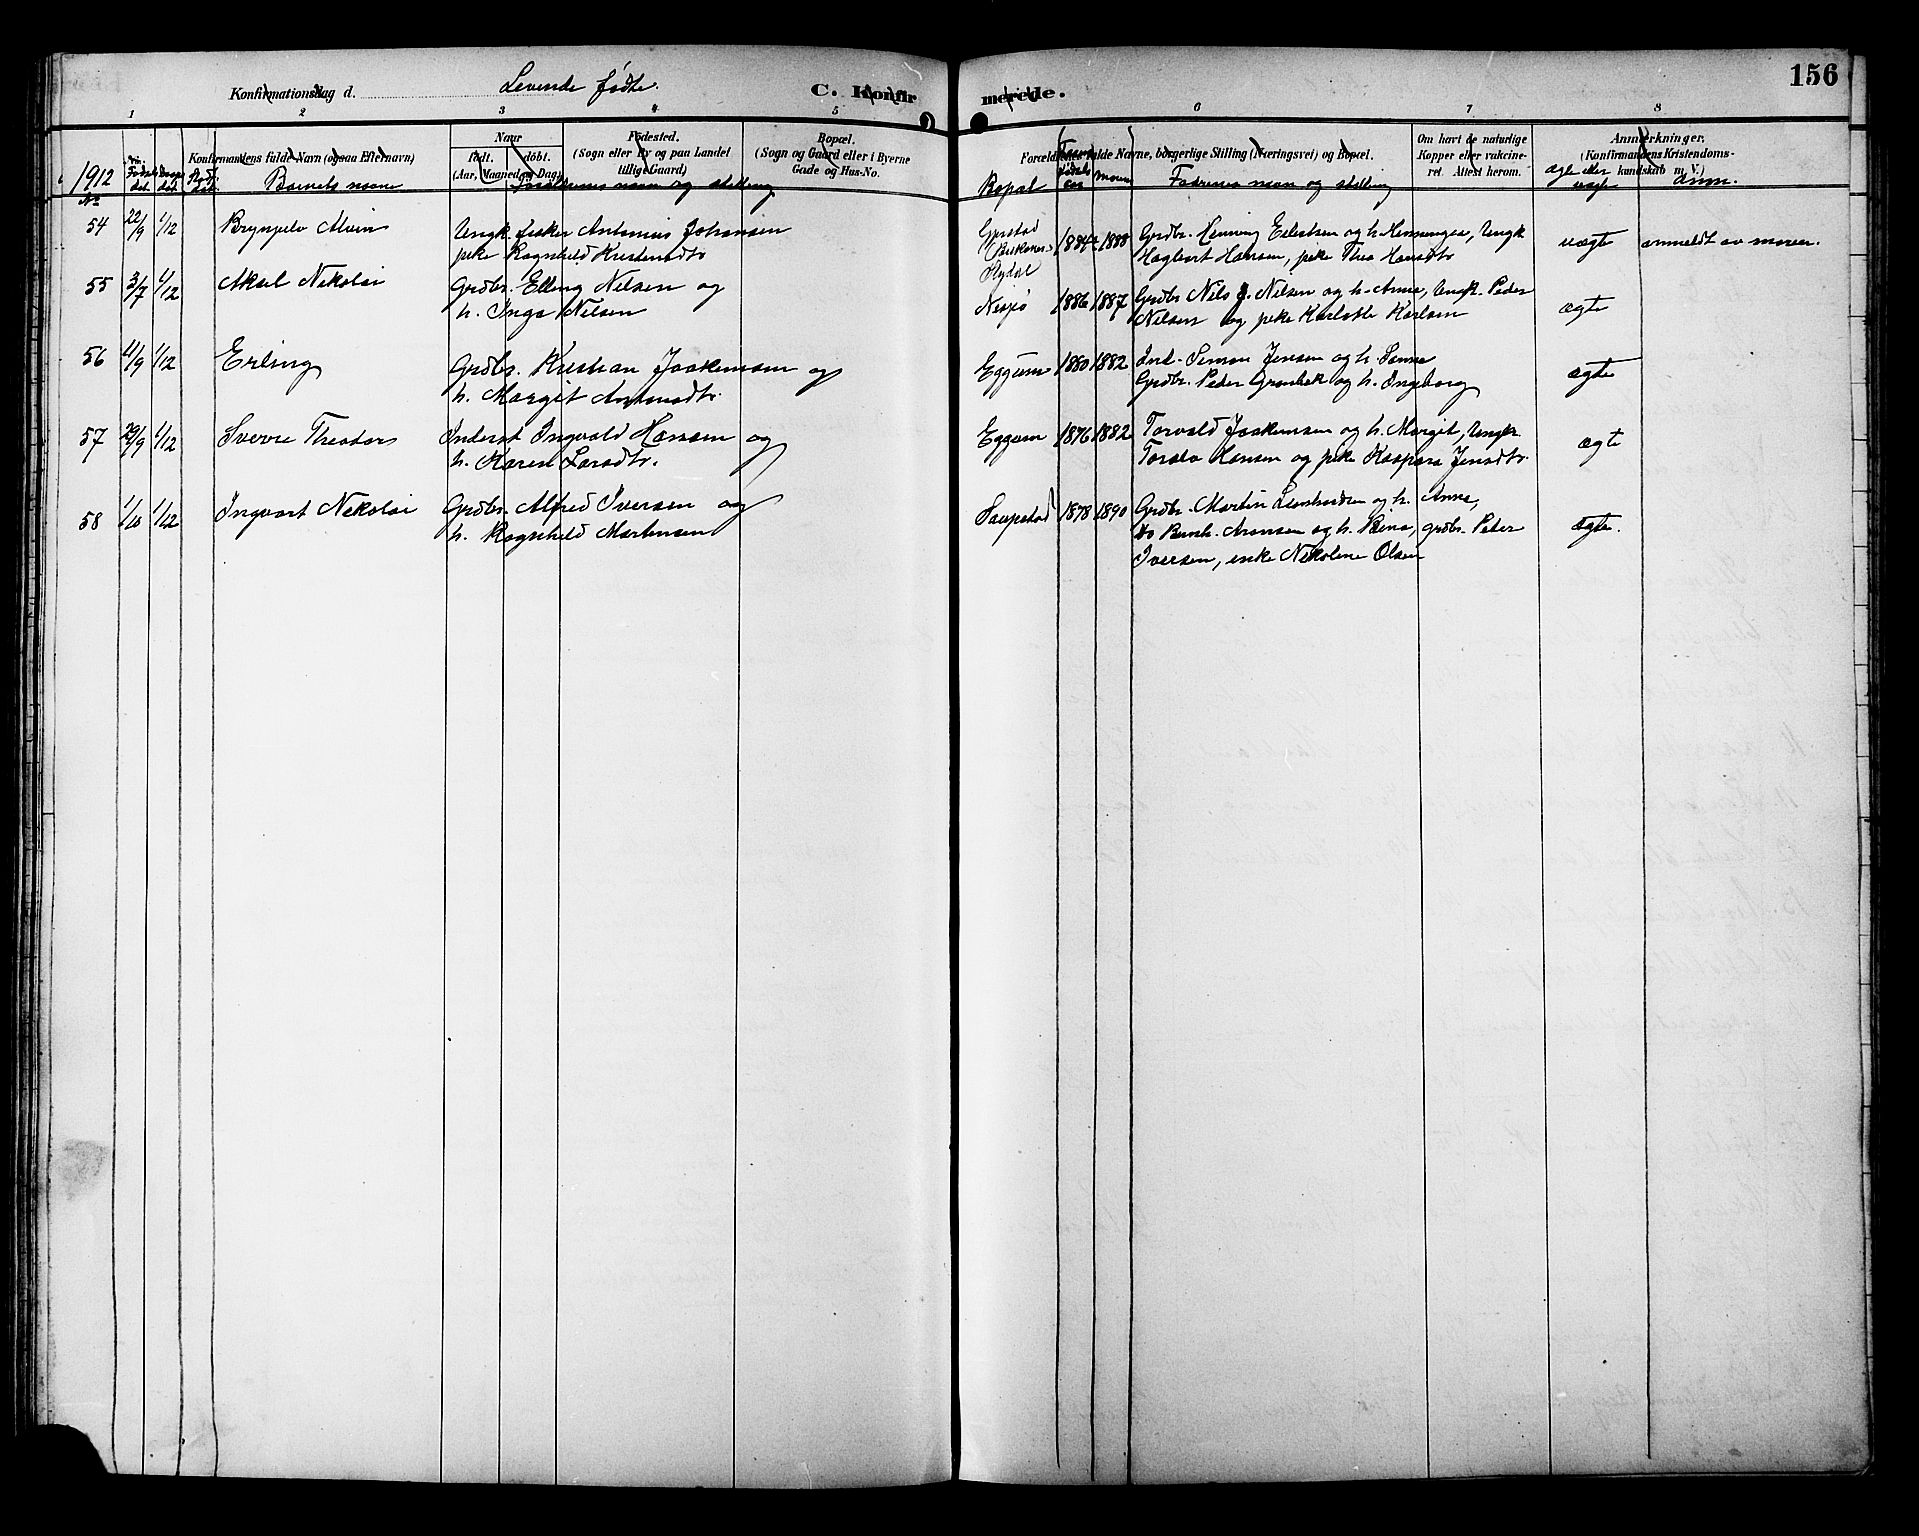 156
Konfirmationsdag d. Levende fødte. C. Konfirmerede.
1 2 3 4 5 6 7 8
Konfirmandens fulde Navn (ogsaa Efternavn)
Naar
født. døbt.
(Aar, Maaned og Dag)
Fødested.
(Sogn eller By og paa Landet
tillige Gaard)
Bopæl.
(Sogn og Gaard eller i Byerne
Gade og Hus-No.
Forældrenes fulde Navne, borgerlige Stilling (Næringsvei) og Bopæl.
Om havt de naturlige
Kopper eller vakcine-
ret. Attest herom.
Anmærkninger.
(Konfirmandens Kristendoms-
kundskab m. V.)
1912 Barnets navn Forældrenes navn og stilling Bopæl Fadrenes navn og stilling ægte eller uægte Anm.
No
54 22/9 1/12 Brynjulv Alvin Ungk. fisker Antonius Johansen
pike Ragnhild Kristensdtr
1884 1888 Grdbr. Henning Eilertsen og h. Henningea, Ungk
Hagbart Hansen, pike Thea Hansdtr uægte anmeldt av moren.
55 3/7 1/12 Aksel Nikolai Grdbr. Elling Nilsen og
h. Inga Nilsen
Nesje 1886 1887 Grdbr Nils J. Nilsen og h. Anna, Ungk. Peder
Nilsen og pike Karlotte Karlsen ægte
56 11/9 1/12 Erling Grdbr. Kristian Joakimsen og
h. Margit Antonsdtr.
Eggum 1880 1882 Ind. Simon Jensen og h. Sanna
Grdbr. Peder Grønbek og h. Ingeborg ægte
57 29/9 1/12 Sverre Theodor Inderst Ingvald Hansen og
h. Karen Larsdtr.
Eggum 1876 1882 Torvald Joakimsen og h. Margit, Ungk.
Toralv Hansen og pike Kaspara Jensdtr. ægte
58 1/10 1/12 Ingvart Nikolai Grdbr. Alfred Iversen og
h. Ragnhild Martinsen
Saupstad 1878 1890 Grdbr. Martin Leonhardsen og h. Anna,
do Bernh. Aronsen og h. Rina, grdbr. Peter
Iversen, enke Nikoline Olsen ægte.